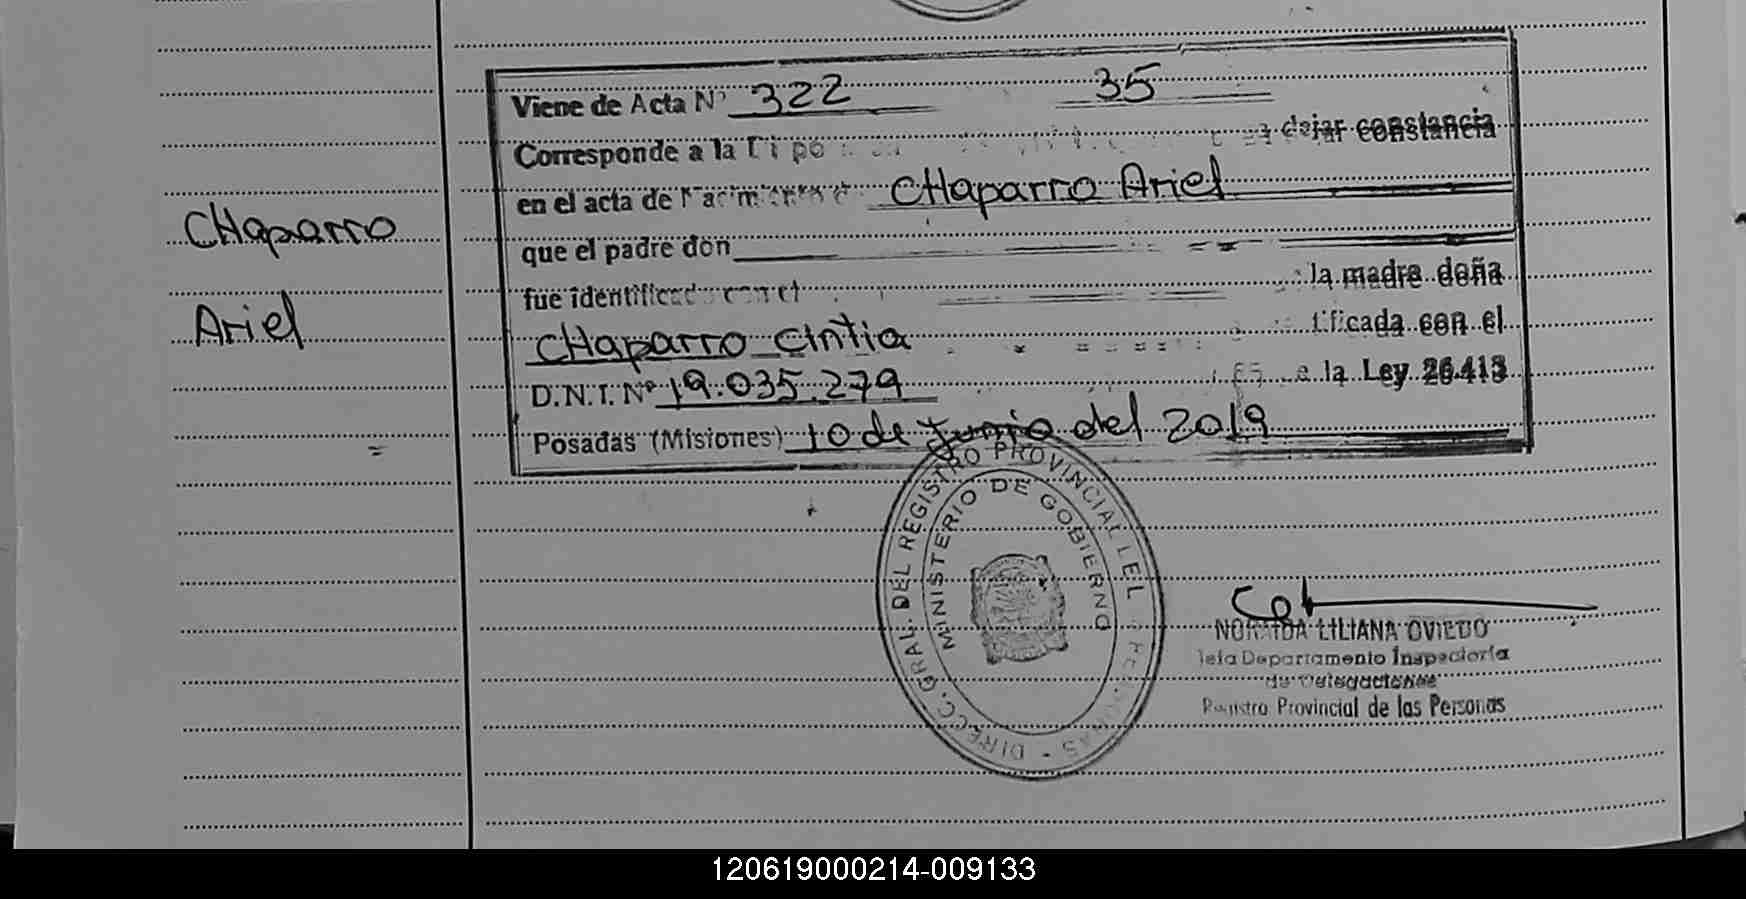 Viene de Acta Nº 322 35
Corresponde a la dejar constancia
en el acta de Nacimiento de CHaparro Ariel
CHaparro
que el padre don
la madre doña
fue identificado con el
Ariel
CHaparro Cintia
tificada con el
D.N.I. Nº 19.035.279 a la Ley 26.413
Posadas (Misiones) 10 de Junio del 2019
DIRECC. GRAL. DEL REGISTRO PROVINCIAL DE LAS PERSONAS -
MINISTERIO DE GOBIERNO
LILIANA OVIEDO
Jefa Departamento Inspectoría
de Delegaciones
Registro Provincial de las Personas
120619000214-009133